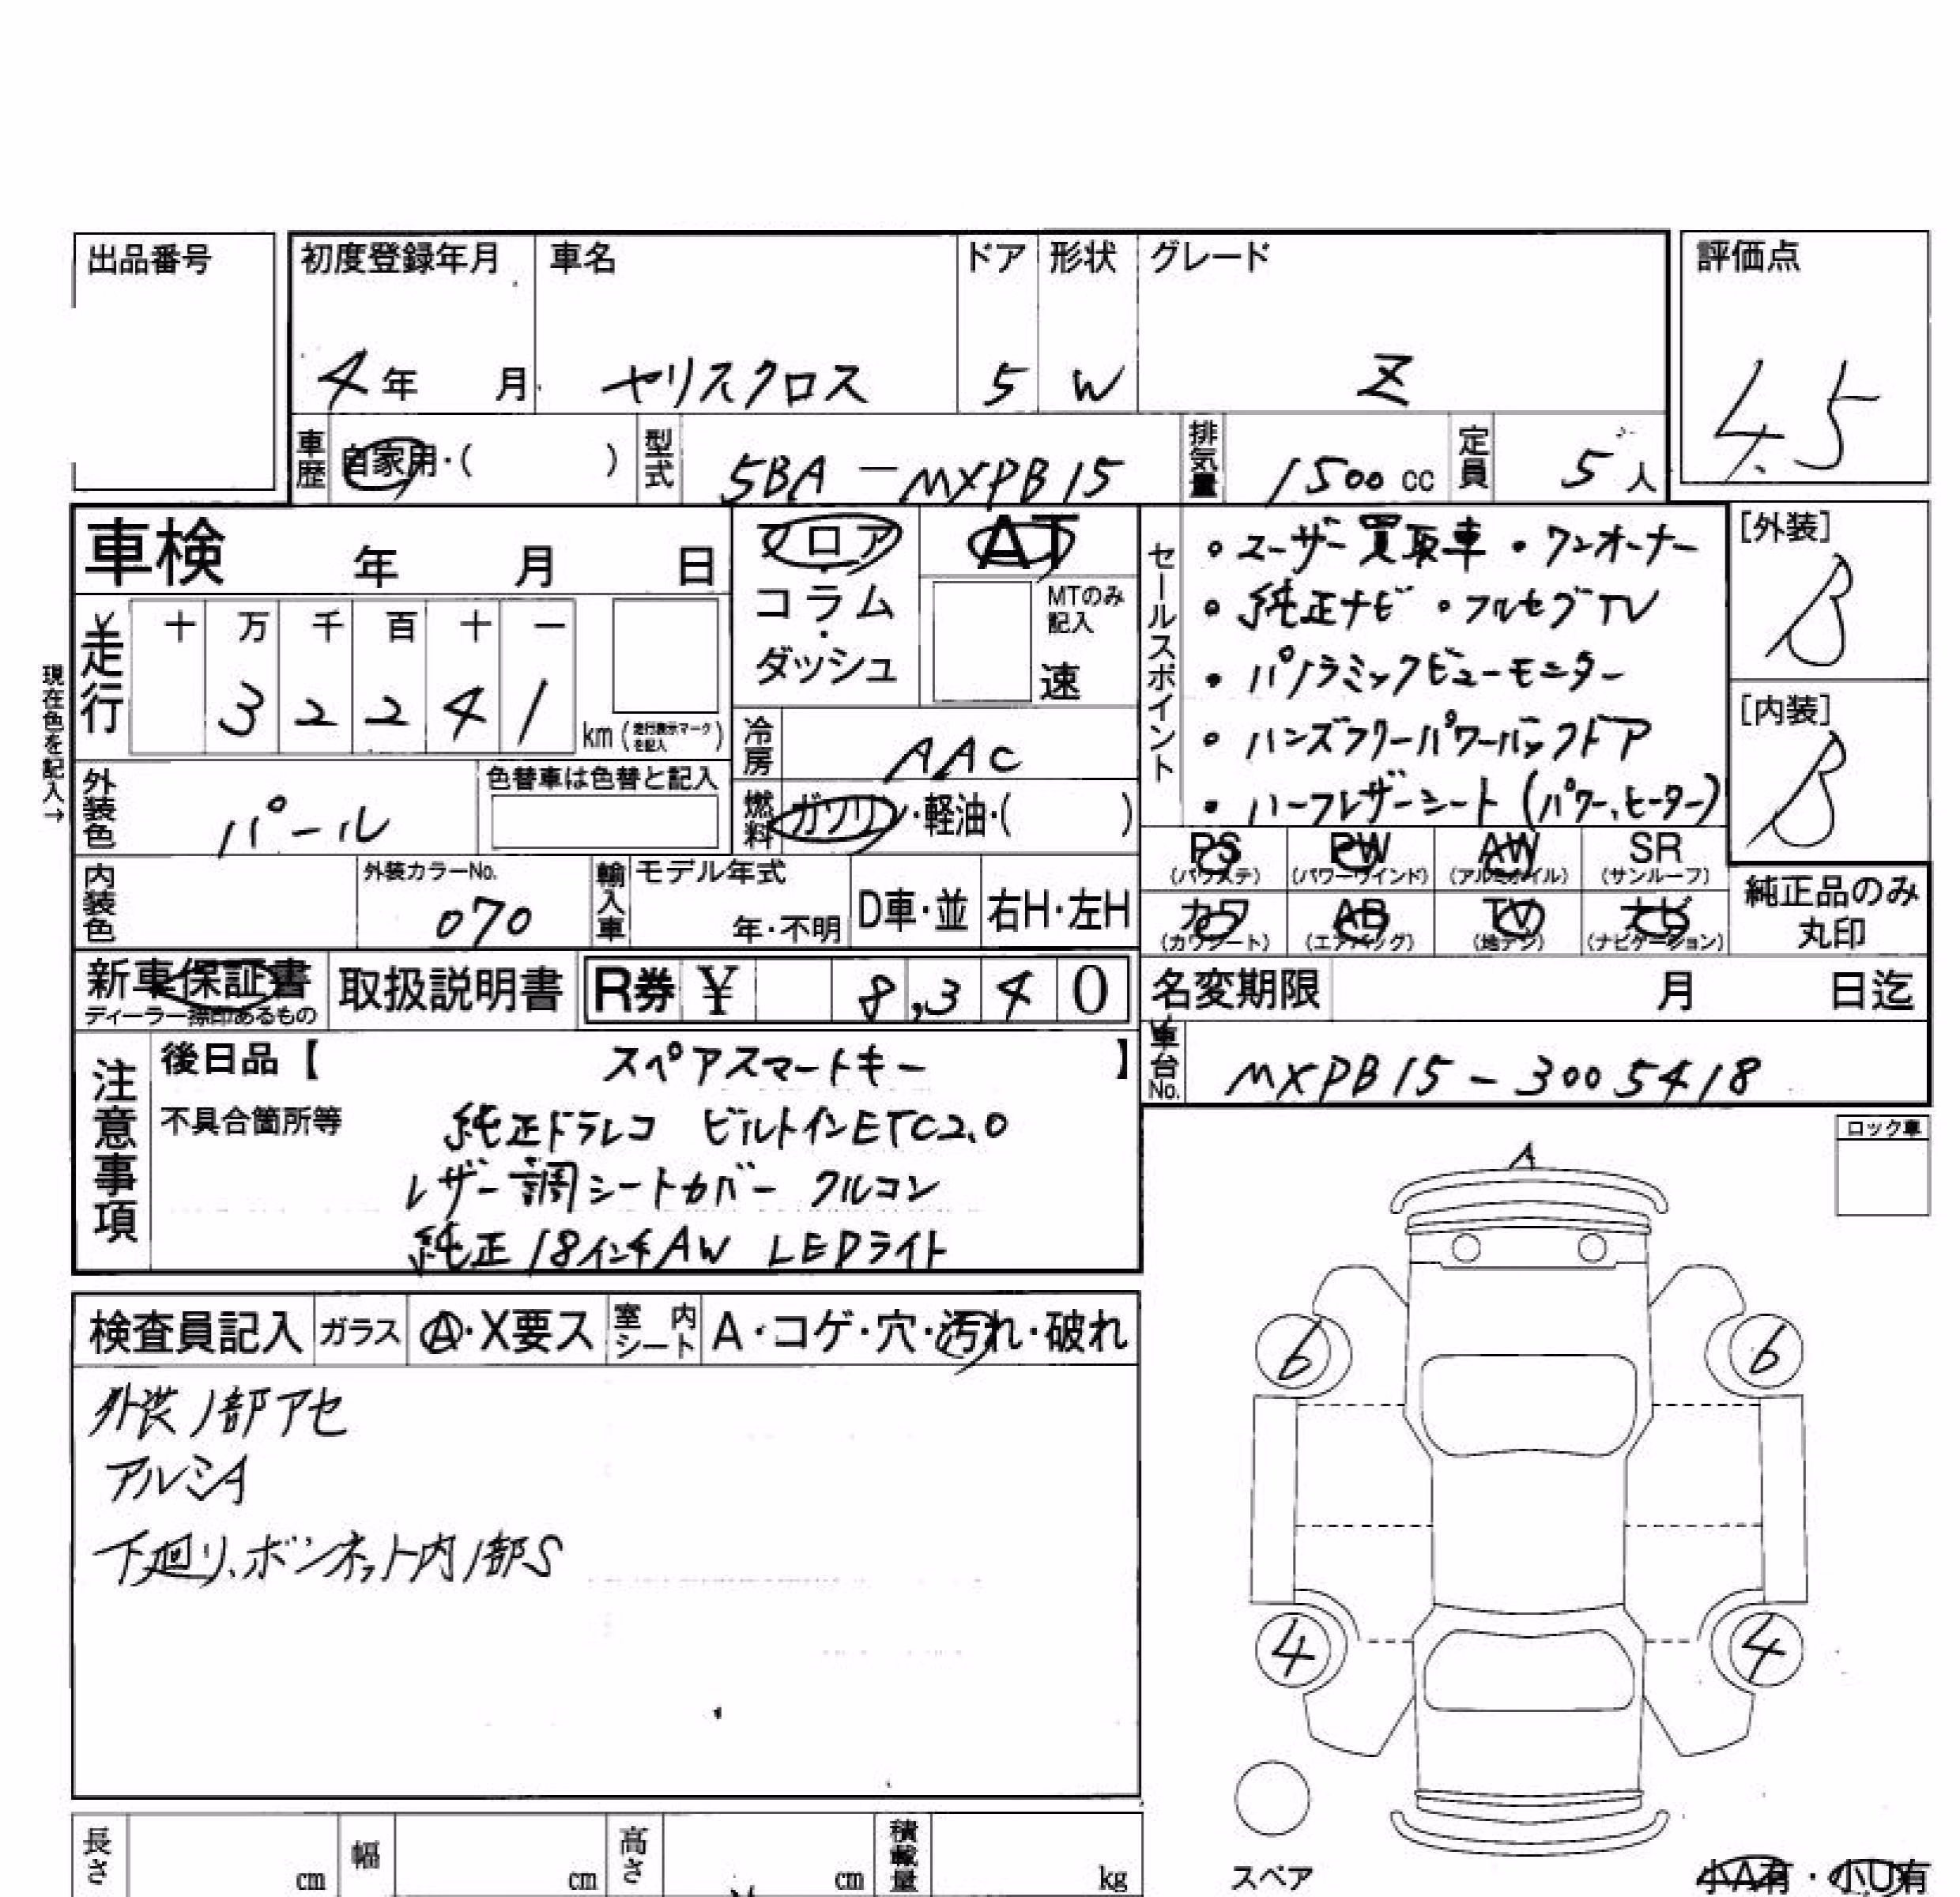 出品番号
初度登録年月 車名 ドア 形状 グレード 評価点
4年 月 ヤリスクロス 5 W Z 4.5
車歴 自家用・( ) 型式 5BA-MXPB15 排気量 1500cc 定員 5人
車検 年 月 日
フロア・コラム・ダッシュ
AT
MTのみ記入
速
セールスポイント
・ユーザー買取車 ・ワンオーナー
・純正ナビ ・フルセグTV
・パノラミックビューモニター
・ハンズフリーパワーバックドア
・ハーフレザーシート(パワー、ヒーター)
[外装]
B
[内装]
B
現在色を記入→
走行 十 万 千 百 十 一
3 2 2 4 1 km(走行表示マークを記入)
冷房 AAC
外装色 パール 色替車は色替と記入
燃料 ガソリン・軽油・( )
PS (パワステ) PW (パワーウインド) AW (アルミホイル) SR (サンルーフ)
カワ (カワシート) AB (エアバッグ) TV (地デジ) ナビ (ナビゲーション)
純正品のみ
丸印
内装色 外装カラーNo. 070 輸入車 モデル年式 年・不明 D車・並 右H・左H
新車保証書 取扱説明書 R券 ¥ 8,340
ディーラー捺印あるもの
名変期限 月 日迄
車台No. MXPB15-3005418
注意事項
後日品【 スペアスマートキー 】
不具合箇所等 純正ドラレコ ビルトインETC2.0
レザー調シートカバー クルコン
純正18インチAW LEDライト
ロック車
A
検査員記入 ガラス A・X要ス 室内シート A・コゲ・穴・汚れ・破れ
外装1部アセ
アルミA
下廻り、ボンネット内1部S
6 6
4 4
スペア
長さ cm 幅 cm 高さ cm 積載量 kg
小A有・小U有